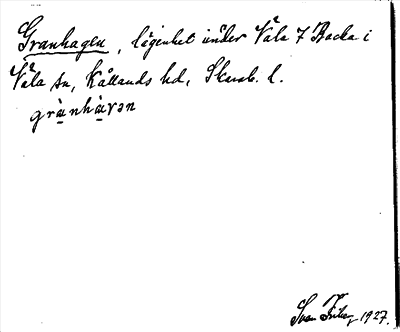 Granhagen, lägenhet under Väla 7 Backa i
Väla sn, Kållands hd, Skarab. l.
grànhàɤən
Sven 1927.